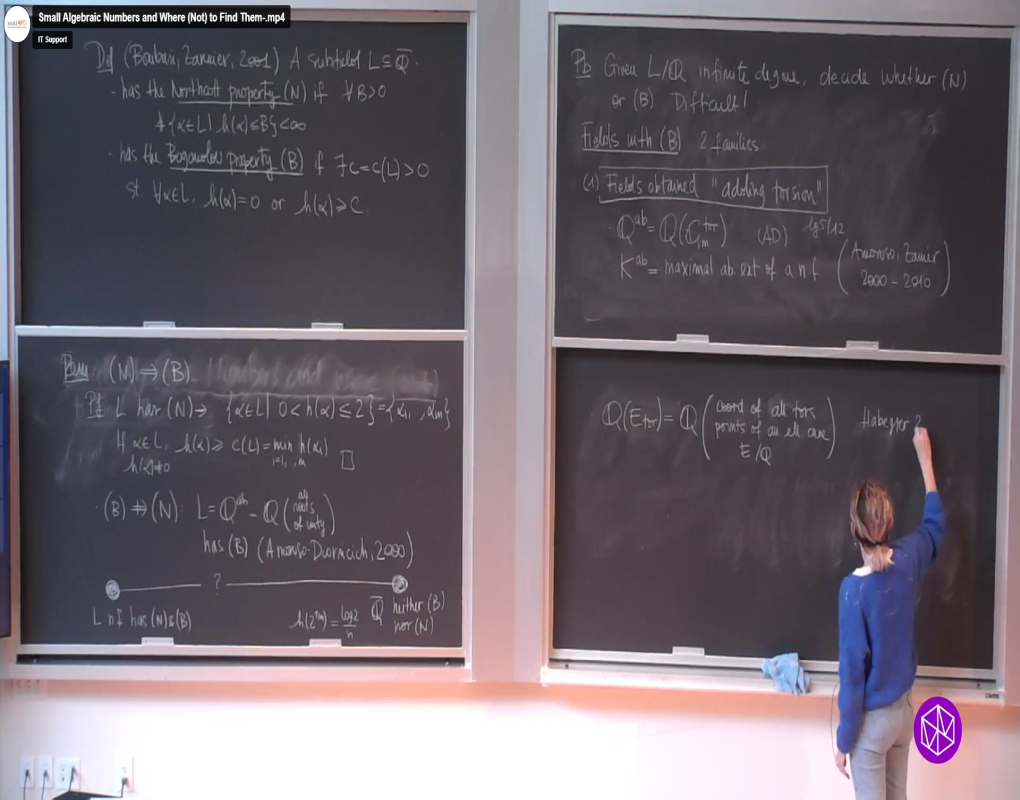 Small Algebraic Numbers and Where (Not) to Find Them-.mp4
IT Support
Def (Bombieri, Zannier, 2001) A subfield L ⊆ Q̄
- has the Northcott property (N) if ∀B>0
#{α∈L | h(α)≤B}<∞
- has the Bogomolov property (B) if ∃c=c(L)>0
st. ∀α∈L, h(α)=0 or h(α)≥c.
Rem (N)⇒(B)
Pf L has (N)→ {α∈L | 0<h(α)≤2}={α1,..,αm}
If α∈L, h(α)≥ c(L)=min h(αi)
h(α)≠0 i=1,..,m □
(B)⇏(N) L=Q^ab = Q(all roots of unity)
has (B) (Amoroso-Dvornicich, 2000)
?
L n f has (N)&(B)
h(2^1/n)=log2/n
Q̄ neither (B)
nor (N)
Pb Given L/Q infinite degree, decide whether (N)
or (B). Difficult!
Fields with (B) 2 families
(1) Fields obtained "adding torsion"
· Q^ab=Q(G_m^tor) (AD) log5/12
K^ab = maximal ab ext of a n.f. (Amoroso, Zannier
2000 - 2010)
Q(E_tor)=Q(coord of all tors
points of an ell curve
E/Q)
Habegger 2